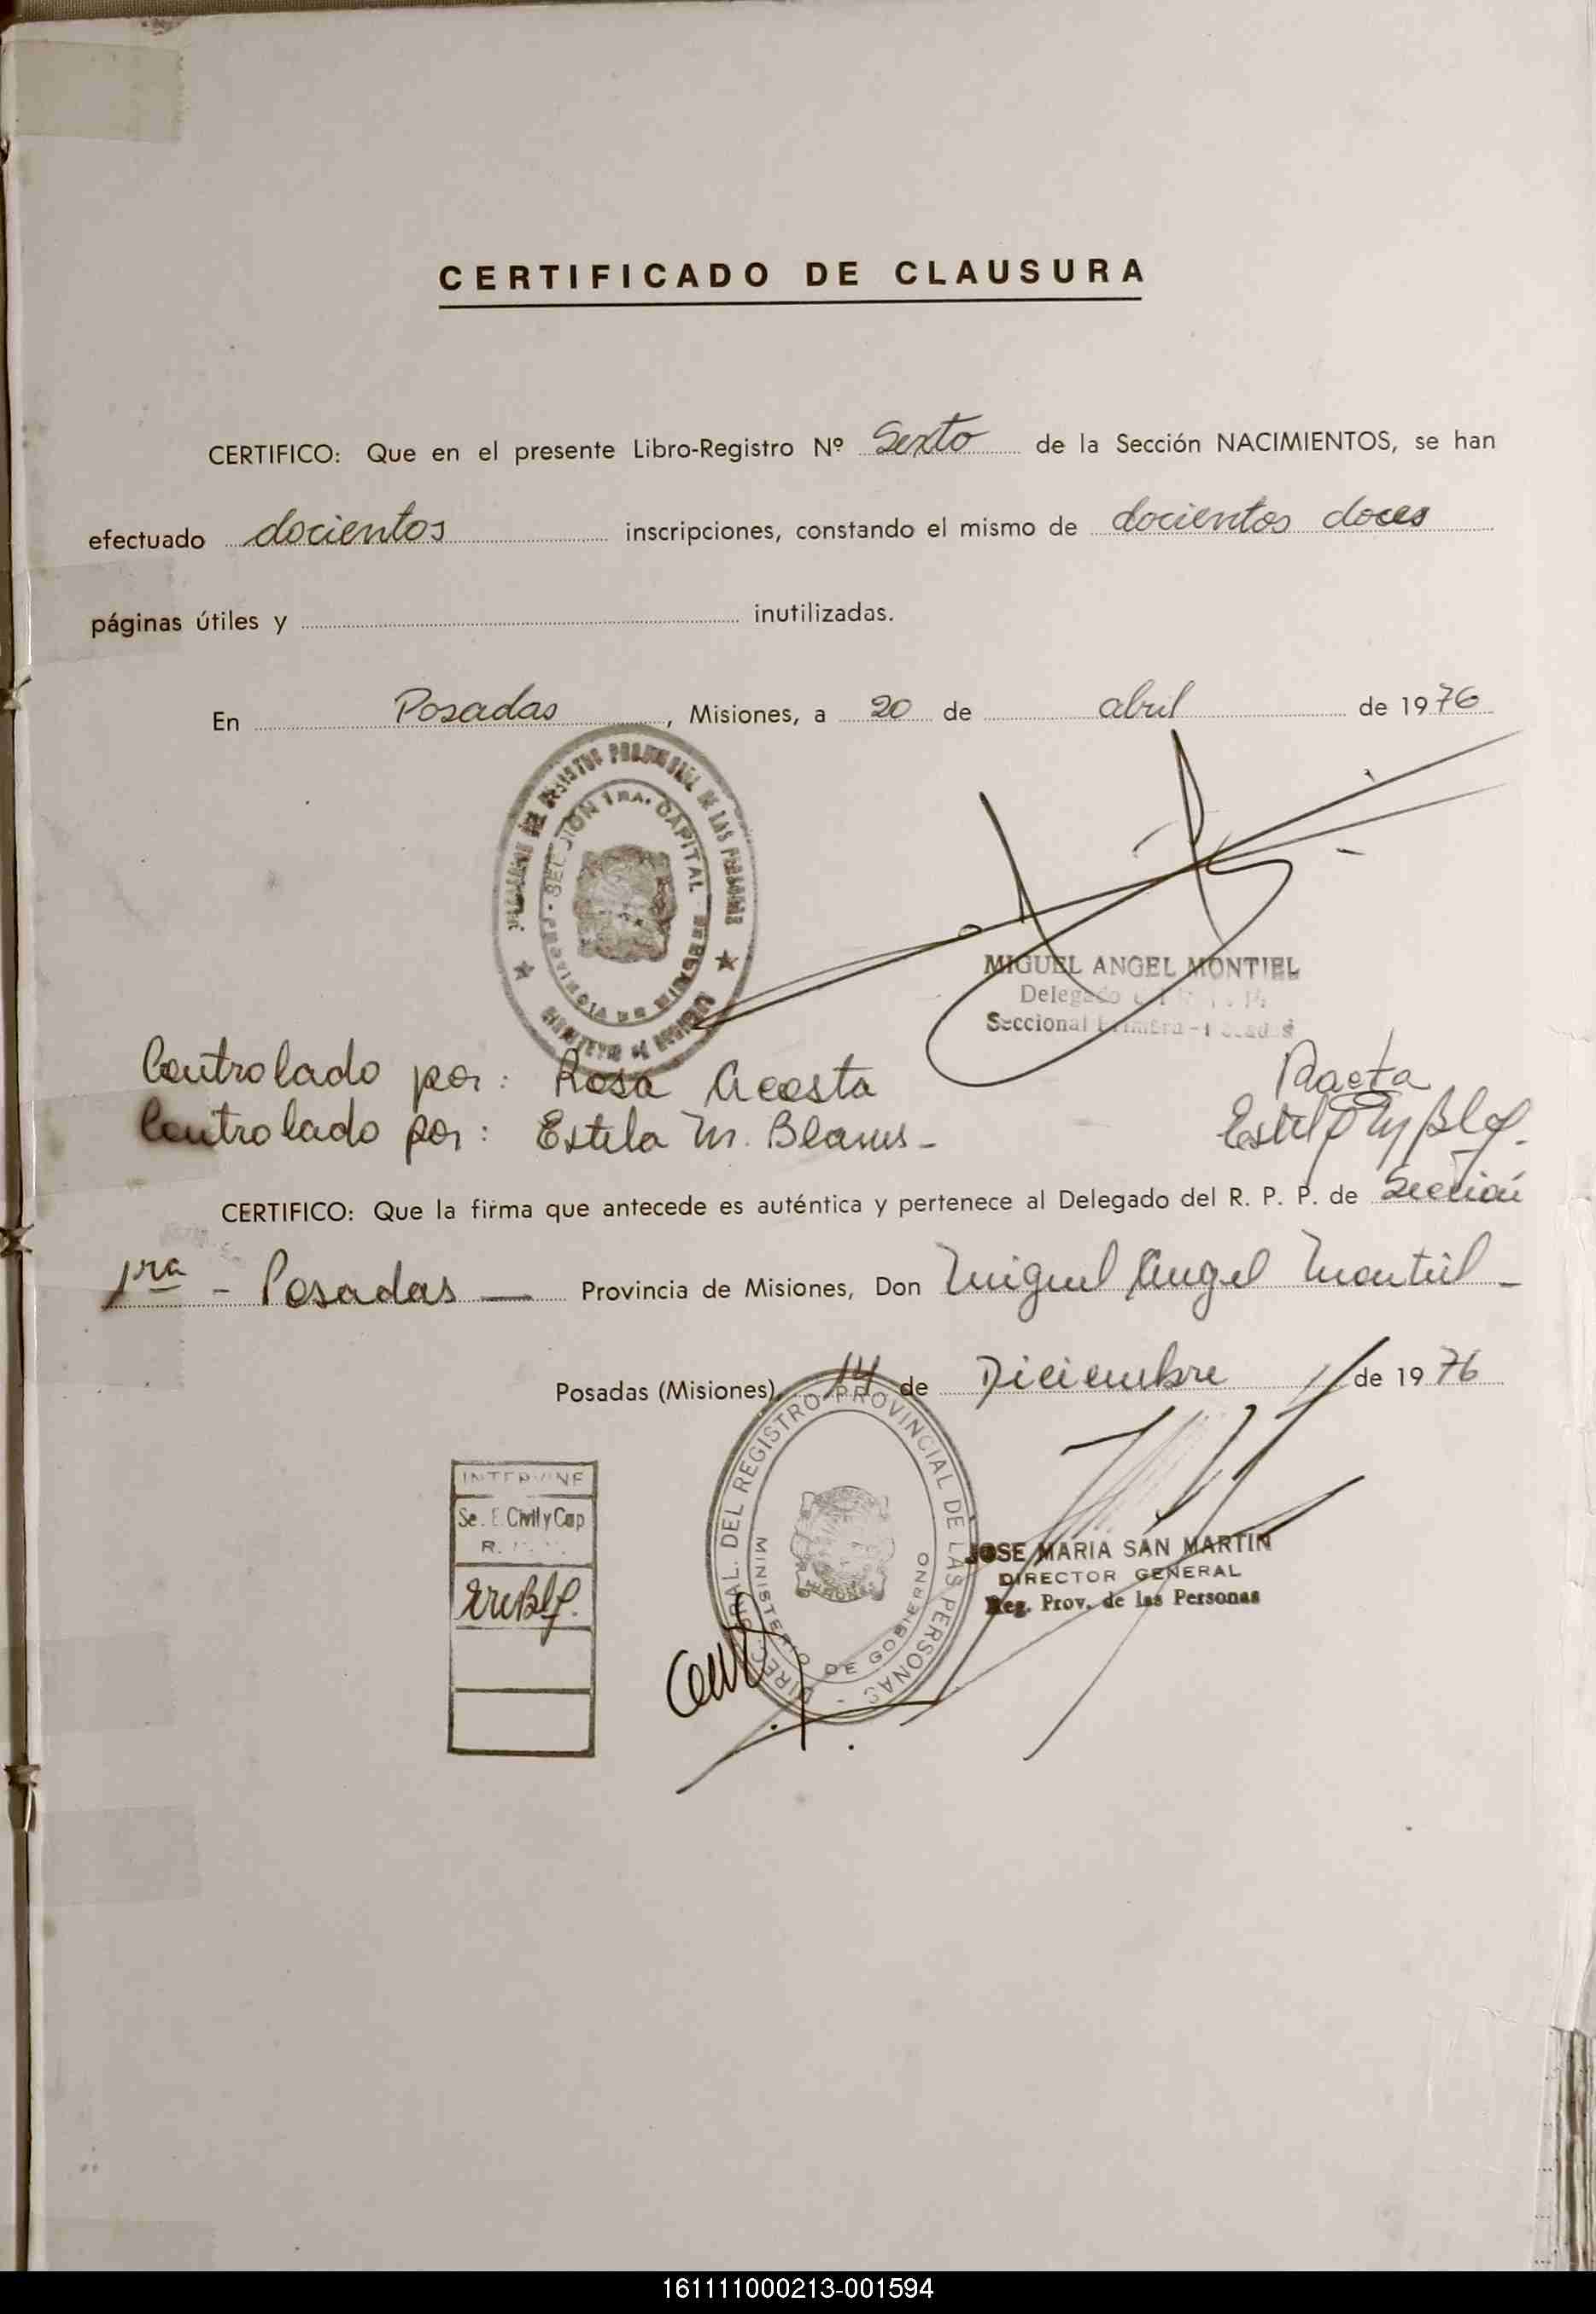 CERTIFICADO DE CLAUSURA
CERTIFICO: Que en el presente Libro-Registro Nº Sexto de la Sección NACIMIENTOS, se han
efectuado docientos inscripciones, constando el mismo de docientos doces
páginas útiles y inutilizadas.
En Posadas, Misiones, a 20 de abril de 1976
SECCION 1RA. CAPITAL
MIGUEL ANGEL MONTIEL
Delegado
Seccional Primera - Posadas
Controlado por: Rosa Acosta
Controlado por: Estela M. Blanus -
CERTIFICO: Que la firma que antecede es auténtica y pertenece al Delegado del R. P. P. de Sección
1ra - Posadas — Provincia de Misiones, Don Miguel Angel Montiel -
Posadas (Misiones), 14 de Diciembre de 1976
INTERVINE
Se. E. Civil y Cap
R.
DIREC. GRAL. DEL REGISTRO PROVINCIAL DE LAS PERSONAS -
MINISTERIO DE GOBIERNO
JOSE MARIA SAN MARTIN
DIRECTOR GENERAL
Reg. Prov. de las Personas
161111000213-001594